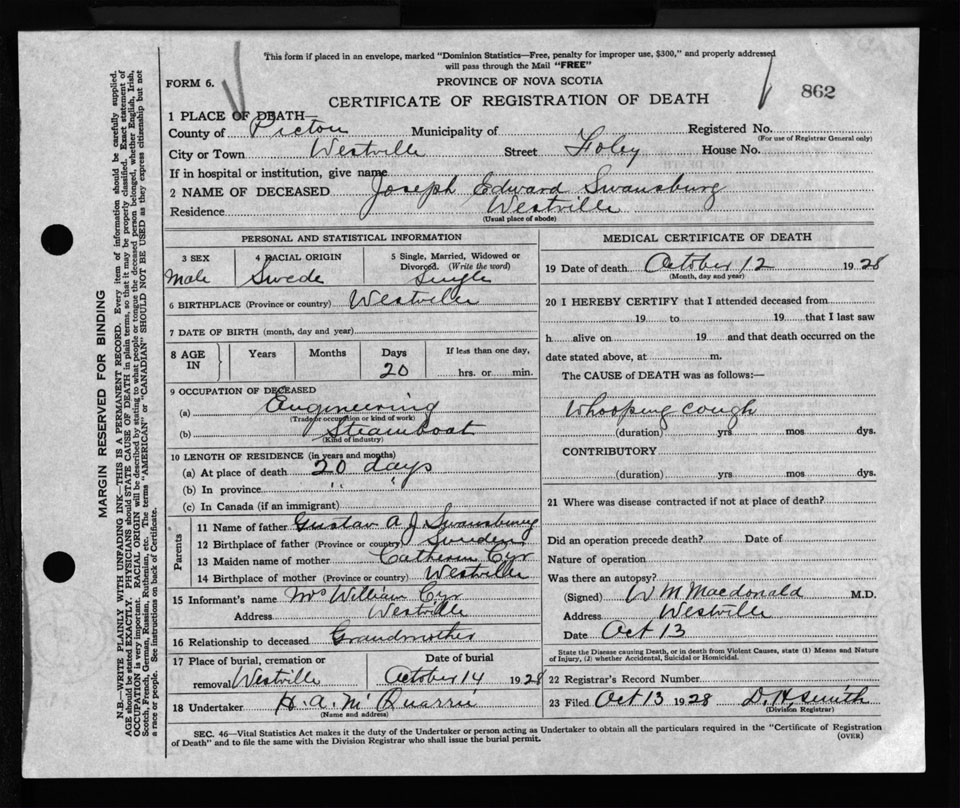 This form if placed in an envelope, marked "Dominion Statistics—Free, penalty for improper use, $300," and properly addressed
will pass through the Mail "FREE"
FORM 6.
PROVINCE OF NOVA SCOTIA
CERTIFICATE OF REGISTRATION OF DEATH
862
1 PLACE OF DEATH—
County of Pictou Municipality of Registered No.
(For use of Registrar General only)
City or Town Westville Street Foley House No.
If in hospital or institution, give name
2 NAME OF DECEASED Joseph Edward Swansburg
Residence Westville
(Usual place of abode)
PERSONAL AND STATISTICAL INFORMATION
3 SEX 4 RACIAL ORIGIN 5 Single, Married, Widowed or
Divorced. (Write the word)
Male Swede Single
6 BIRTHPLACE (Province or country) Westville
7 DATE OF BIRTH (month, day and year)
8 AGE IN Years Months Days If less than one day,
20 hrs. or min.
9 OCCUPATION OF DECEASED
(a) Engineering
(Trade or occupation or kind of work)
(b) Steamboat
(Kind of industry)
10 LENGTH OF RESIDENCE (in years and months)
(a) At place of death 20 days
(b) In province " "
(c) In Canada (if an immigrant)
Parents
11 Name of father Gustav A J Swansburg
12 Birthplace of father (Province or country) Sweden
13 Maiden name of mother Catherine Cyr
14 Birthplace of mother (Province or country) Westville
15 Informant's name Mrs William Cyr
Address Westville
16 Relationship to deceased Grandmother
17 Place of burial, cremation or Date of burial
removal Westville October 14 1928
18 Undertaker H. A. McQuarrie
(Name and address)
MEDICAL CERTIFICATE OF DEATH
19 Date of death October 12 1928
(Month, day and year)
20 I HEREBY CERTIFY that I attended deceased from
19 to 19 that I last saw
h alive on 19 and that death occurred on the
date stated above, at m.
The CAUSE of DEATH was as follows:—
Whooping cough
(duration) yrs mos dys.
CONTRIBUTORY
(duration) yrs mos dys.
21 Where was disease contracted if not at place of death?
Did an operation precede death? Date of
Nature of operation
Was there an autopsy?
(Signed) W M Macdonald M.D.
Address Westville
Date Oct 13
State the Disease causing Death, or in death from Violent Causes, state (1) Means and Nature
of Injury, (2) whether Accidental, Suicidal or Homicidal.
22 Registrar's Record Number
23 Filed Oct 13 1928 D. H. Smith
(Division Registrar)
SEC. 46—Vital Statistics Act makes it the duty of the Undertaker or person acting as Undertaker to obtain all the particulars required in the "Certificate of Registration
of Death" and to file the same with the Division Registrar who shall issue the burial permit.
(OVER)
MARGIN RESERVED FOR BINDING
N.B.—WRITE PLAINLY WITH UNFADING INK—THIS IS A PERMANENT RECORD. Every item of information should be carefully supplied.
AGE should be stated EXACTLY. PHYSICIANS should STATE CAUSE OF DEATH in plain terms, so that it may be properly classified. Exact statement of
OCCUPATION is very important. RACIAL ORIGIN will be described by stating to what people or tongue the deceased person belonged, whether English, Irish,
Scotch, French, German, Russian, Ruthenian, etc. The terms "AMERICAN" or "CANADIAN" SHOULD NOT BE USED as they express citizenship but not
a race or people. See instructions on back of Certificate.